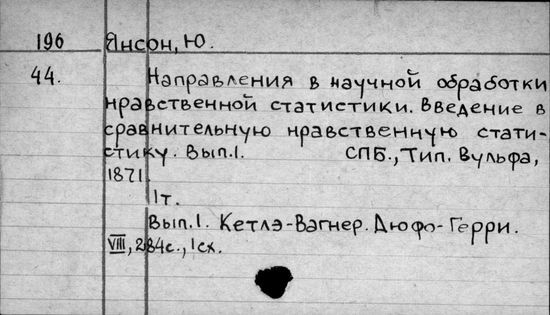 196 Янсон, Ю.
44. Направления в научной обработки
нравственной статистики. Введение в
сравнительную нравственную стати-
стику. Вып.1. СПБ., Тип. Вульфа,
1871.
1т.
Вып.1. Кетлэ-Вагнер. Дюфо-Герри.
VIII, 284с., 1сх.